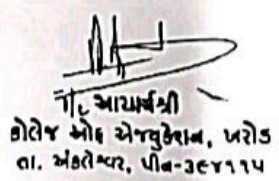 આચાર્યશ્રી
કોલેજ ઓફ એજ્યુકેશન, ખરોડ
તા. અંકલેશ્વર, પીન-૩૯૪૧૧૫